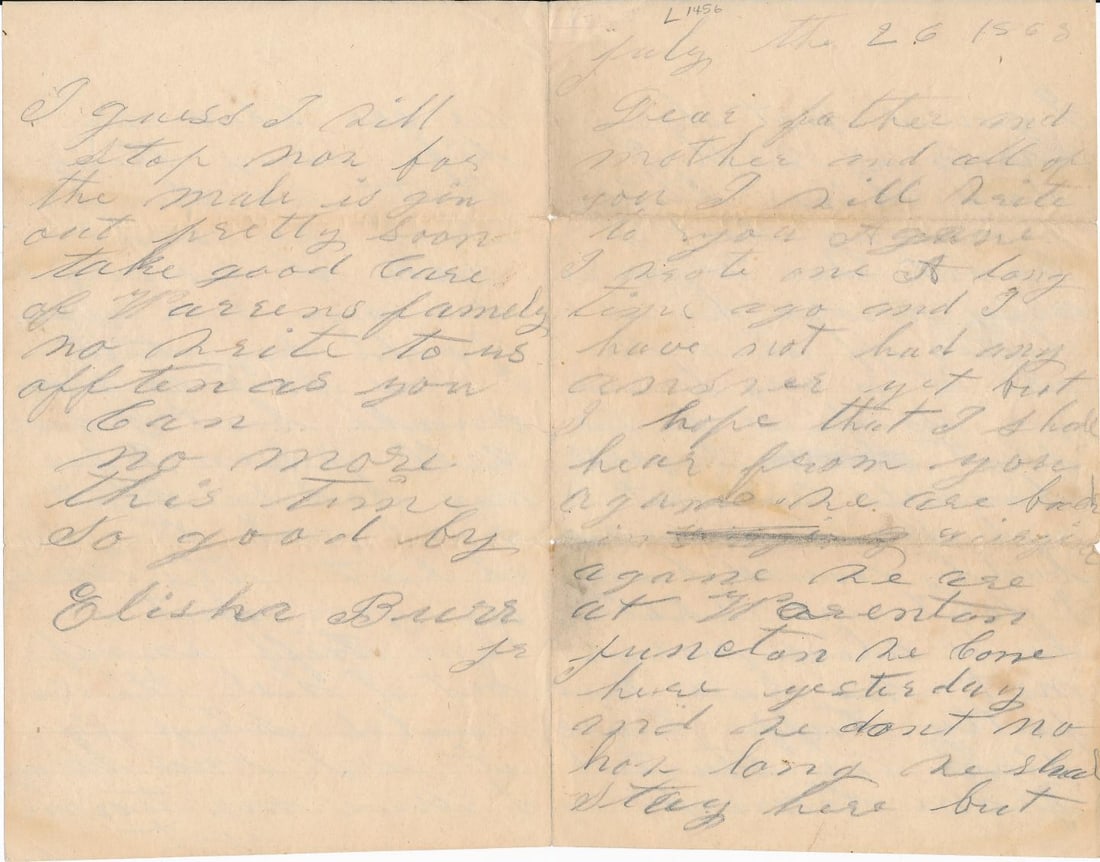 L 1456
july the 26 1863
Dear father and
mother and all of
you I will write
to you Agane
I wrote one A long
time ago and I
have not had any
answer yet but
I hope that I shal
hear from you
agane we are back
in virginia
agane we are
at Warenton
juncton we Come
here yesterday
and we dont no
how long we shal
stay here but
I guess I will
stop now for
the male is gin
out pretty soon
take good Care
of Warrens famely
no write to us
offten as you
Can
no more
this time
So good by
Elisha Burr
jr